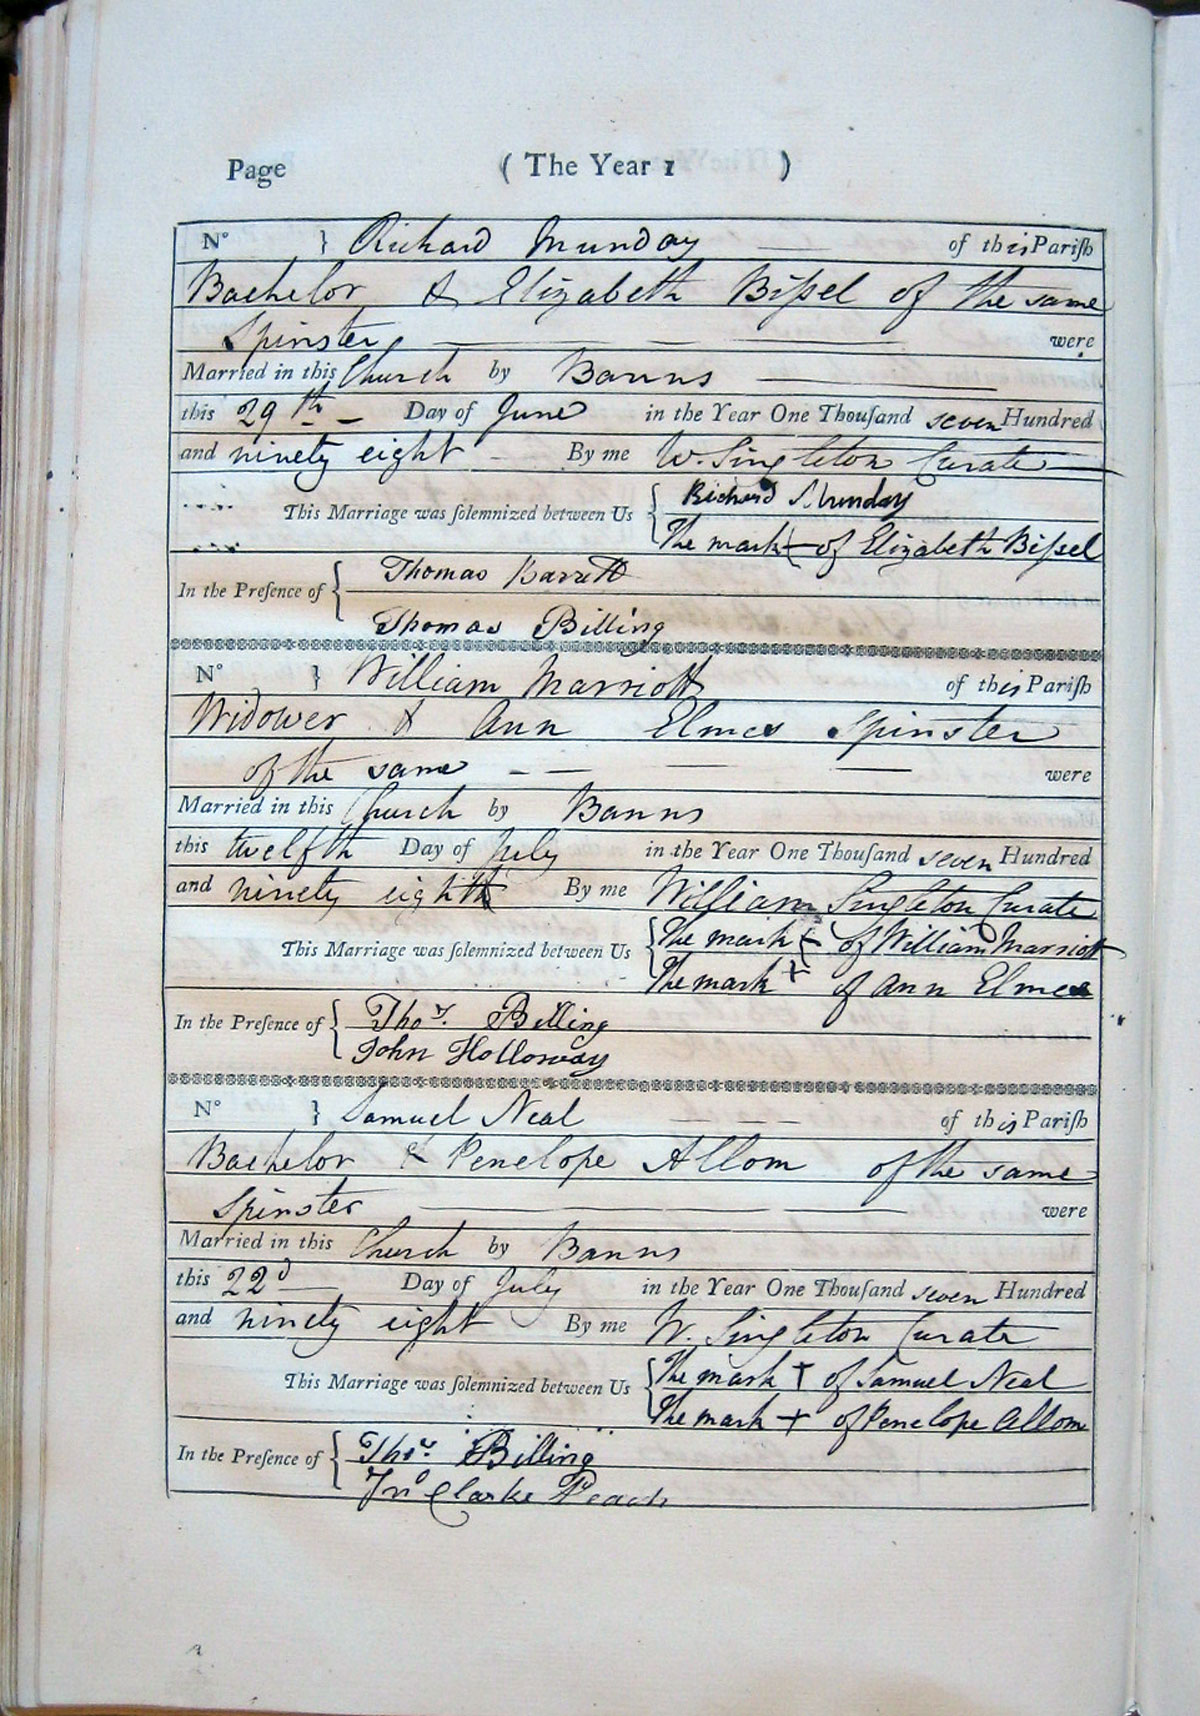 Page ( The Year 1 )
N° } Richard Munday of this Pariſh
Bachelor & Elizabeth Biſsel of the same
Spinster were
Married in this Church by Banns
this 29th Day of June in the Year One Thouſand seven Hundred
and ninety eight By me W. Singleton Curate
This Marriage was ſolemnized between Us { Richard Munday
The mark + of Elizabeth Biſsel
In the Preſence of { Thomas Barrett
Thomas Billing
N° } William Marriott of this Pariſh
Widower & Ann Elmes Spinster
of the same were
Married in this Church by Banns
this twelfth Day of July in the Year One Thouſand seven Hundred
and ninety eighth By me William Singleton Curate
This Marriage was ſolemnized between Us { The mark + of William Marriott
The mark + of Ann Elmes
In the Preſence of { Thos. Billing
John Holloway
N° } Samuel Neal of this Pariſh
Bachelor & Penelope Allom of the same
Spinster were
Married in this Church by Banns
this 22d Day of July in the Year One Thouſand seven Hundred
and ninety eight By me W. Singleton Curate
This Marriage was ſolemnized between Us { The mark + of Samuel Neal
The mark + of Penelope Allom
In the Preſence of { Thos. Billing
Jno Clarke Peach